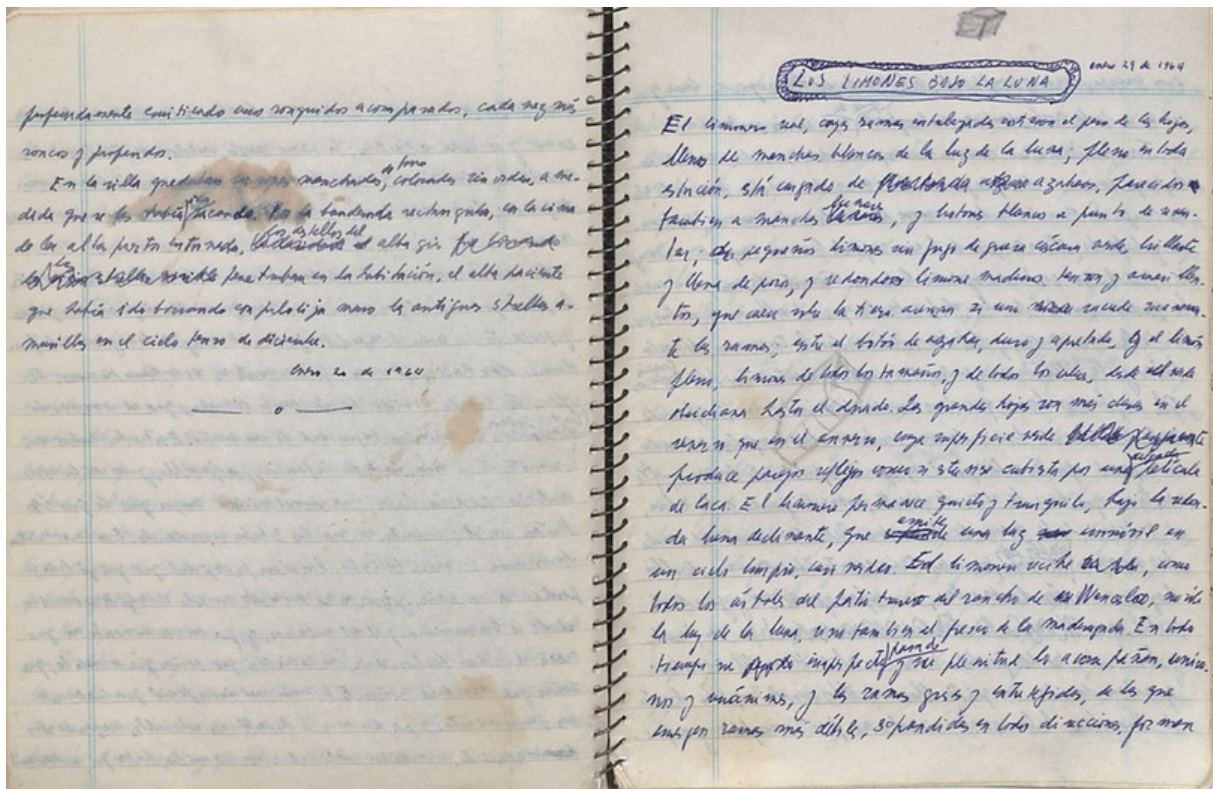 profundamente emitiendo unos ronquidos acompasados, cada vez más
roncos y profundos.
En la villa quedaban manchados, de toro colorados sin orden, a me-
dida que se los había sacando. En la banderita rectangular, en la cima
de las alta puerta entornada, los destellos del alba gris
penetraban en la habitación, el alba paciente
que había ido borrando con prolija mano las antiguas estrellas a-
marillas en el cielo tenso de diciembre.
enero 20 de 1964
enero 29 de 1964
LOS LIMONES BAJO LA LUNA
El limonero real, cuyas ramas entrelazadas el peso de las hojas,
llenas de manchas blancas de la luz de la luna; pleno en toda
estación, está cargido de azahares, parecidos
también a manchas lunares, y botones blancos a punto de reven-
tar, de pequeños limones sin jugo de gruesa cáscara verde, brillante
y llena de poros, y redondos limones maduros, tensos y amarillen-
tos, que caen sobre la tierra apenas si uno sacude suavemen-
te las ramas; entre el botón de azahar, duro y apretado, y el limón
pleno, limones de todos los tamaños y de todos los colores, desde el verde
obsidiana hasta el dorado. Las grandes hojas son más claras en el
reverso que en el anverso, cuya superficie verde
produce parejos reflejos como si estuviese cubierta por una delgada película
de laca. El limonero permanece quieto y tranquilo, bajo la redon-
da luna declinante, que emite una luz inmóvil en
un cielo limpio, casi verde. El limonero recibe, como
todos los árboles del patio trasero del rancho de Wenceslao, no sólo
la luz de la luna sino también el fresco de la madrugada. En todo
tiempo su imperfecto pasado y su plenitud lo acompañan, únicos
y unánimes, y las ramas grises y entretejidas, de las que
emergen ramas más débiles, expandidas en todas direcciones, forman